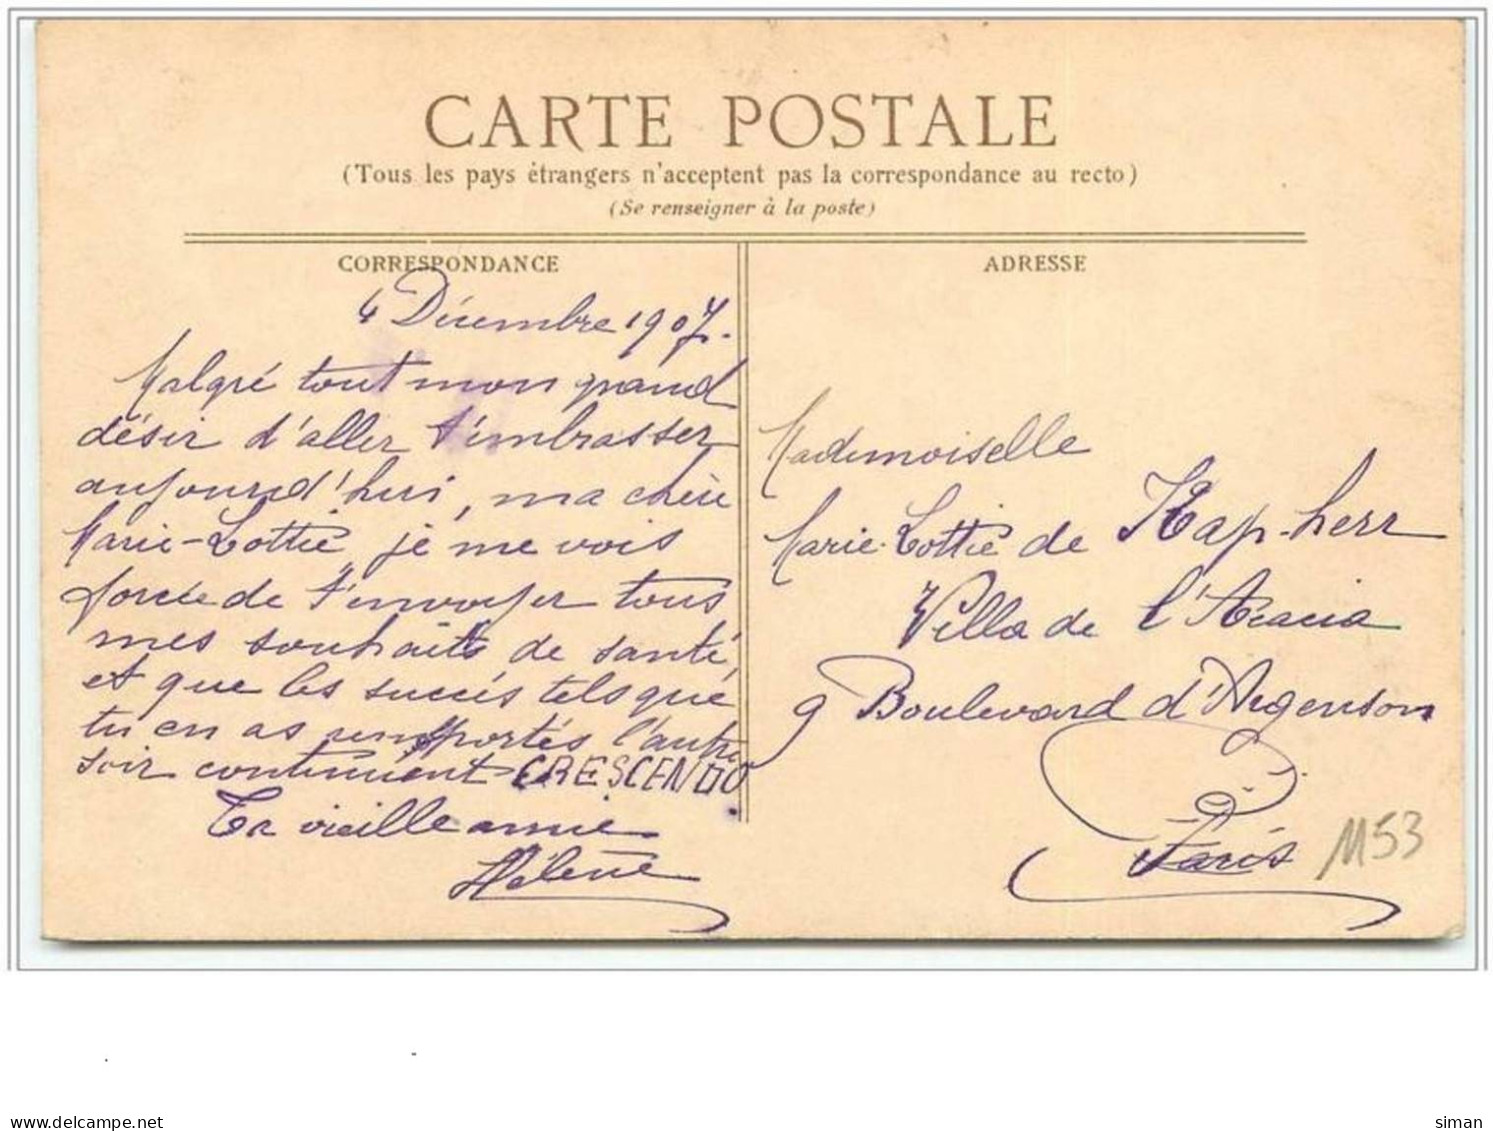 CARTE POSTALE
(Tous les pays étrangers n'acceptent pas la correspondance au recto)
(Se renseigner à la poste)
CORRESPONDANCE
4 Décembre 1907.
Malgré tout mon grand
désir d'aller t'embrasser
aujourd'hui, ma chère
Marie-Lottie je me vois
forcée de t'envoyer tous
mes souhaits de santé,
et que les succès tels que
tu en as remportés l'autre
soir continuent CRESCENDO
Ta vieille amie
Hélène
ADRESSE
Mademoiselle
Marie-Lottie de Kap-herr
Villa de l'Acacia
9 Boulevard d'Argenson
Paris
M53
www.delcampe.net
siman